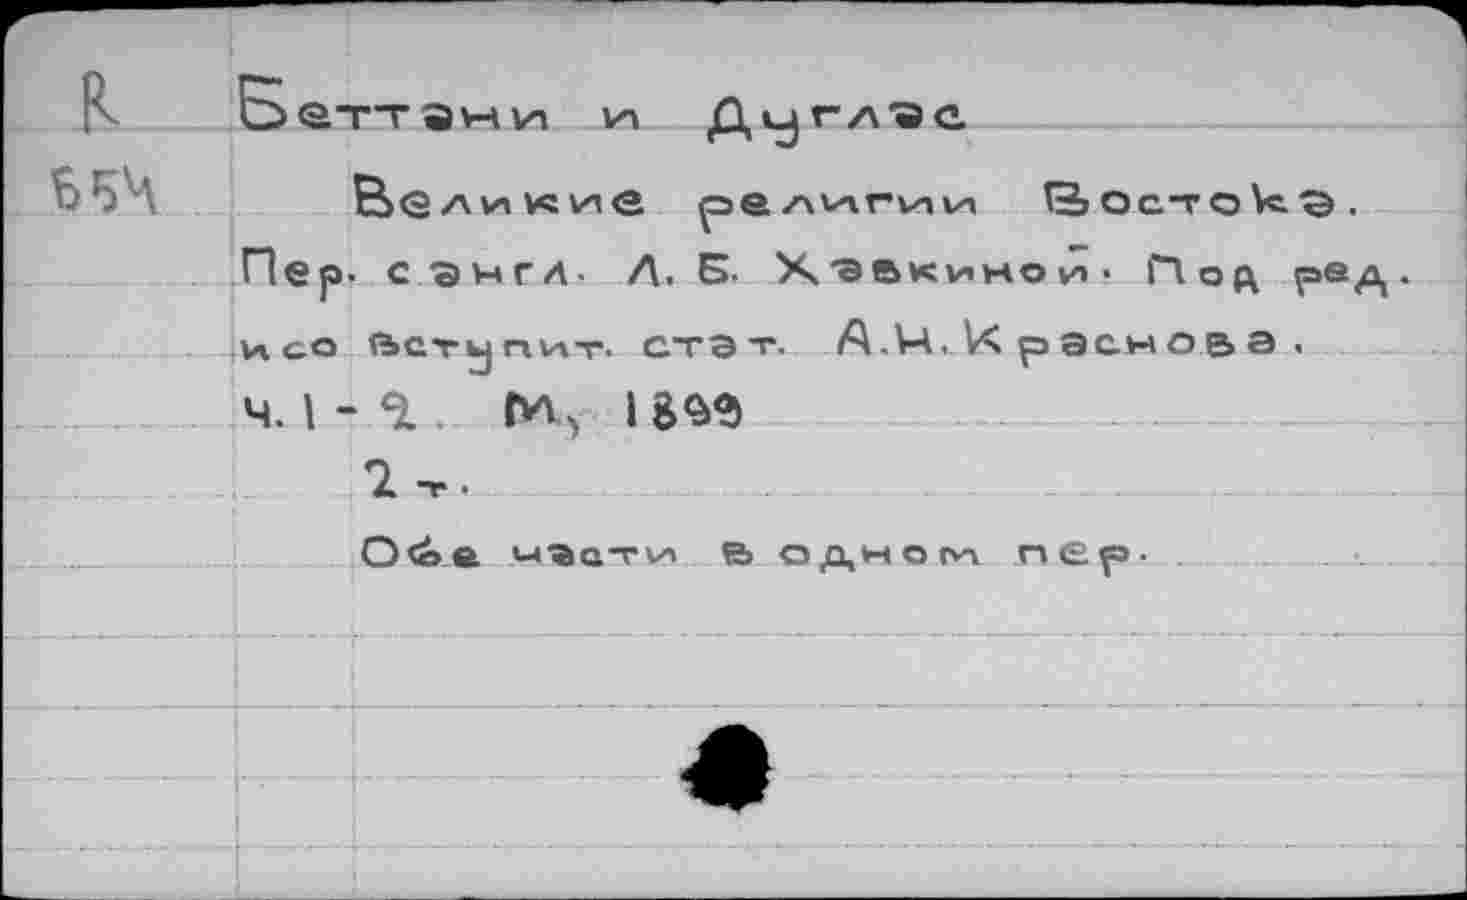 R Беттани и Дуглас
Б54 Великие религии Востока.
Пер. с англ. Л. Б. Хавкиной. Под ред.
и со вступит. стат. А.Н. Краснова.
Ч. 1 - 2. М., 1899
2 т.
Обе части в одном пер.